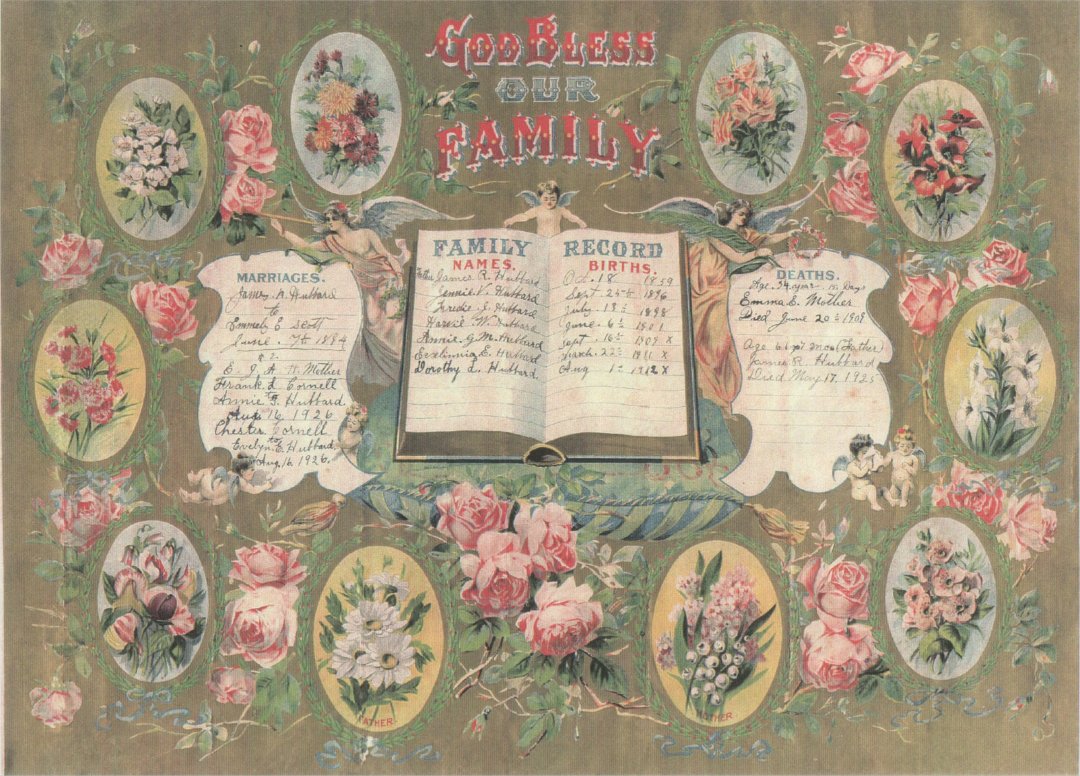 GOD BLESS
OUR
FAMILY
FAMILY RECORD
NAMES. BIRTHS.
Father James R. Hubbard Oct. 18 1859
Jennie V. Hubbard Sept 24th 1896
Fredie J. Hubbard July 13th 1898
Harvie W. Hubbard June. 6th 1901
Annie. G. M. Hubbard Sept. 16th 1909 X
Evelinia E. Hubbard March. 22nd 1911 X
Dorothy L. Hubbard. Aug 1st 1912 X
MARRIAGES.
James A. Hubbard
to
Emmely E Scott
June. 7th 1894
E. J. A. H. Mother
Frank L Cornell
to
Annie G. Hubbard
Aug 16, 1926
Chester Cornell
to
Evelyn E. Hubbard
Aug. 16, 1926.
DEATHS.
Age. 34 years 15 Days
Emma E. Mother
Died June 20th 1909
Age 61 yr mos (Father)
James R. Hubbard
Died May 17. 1925
FATHER.
MOTHER